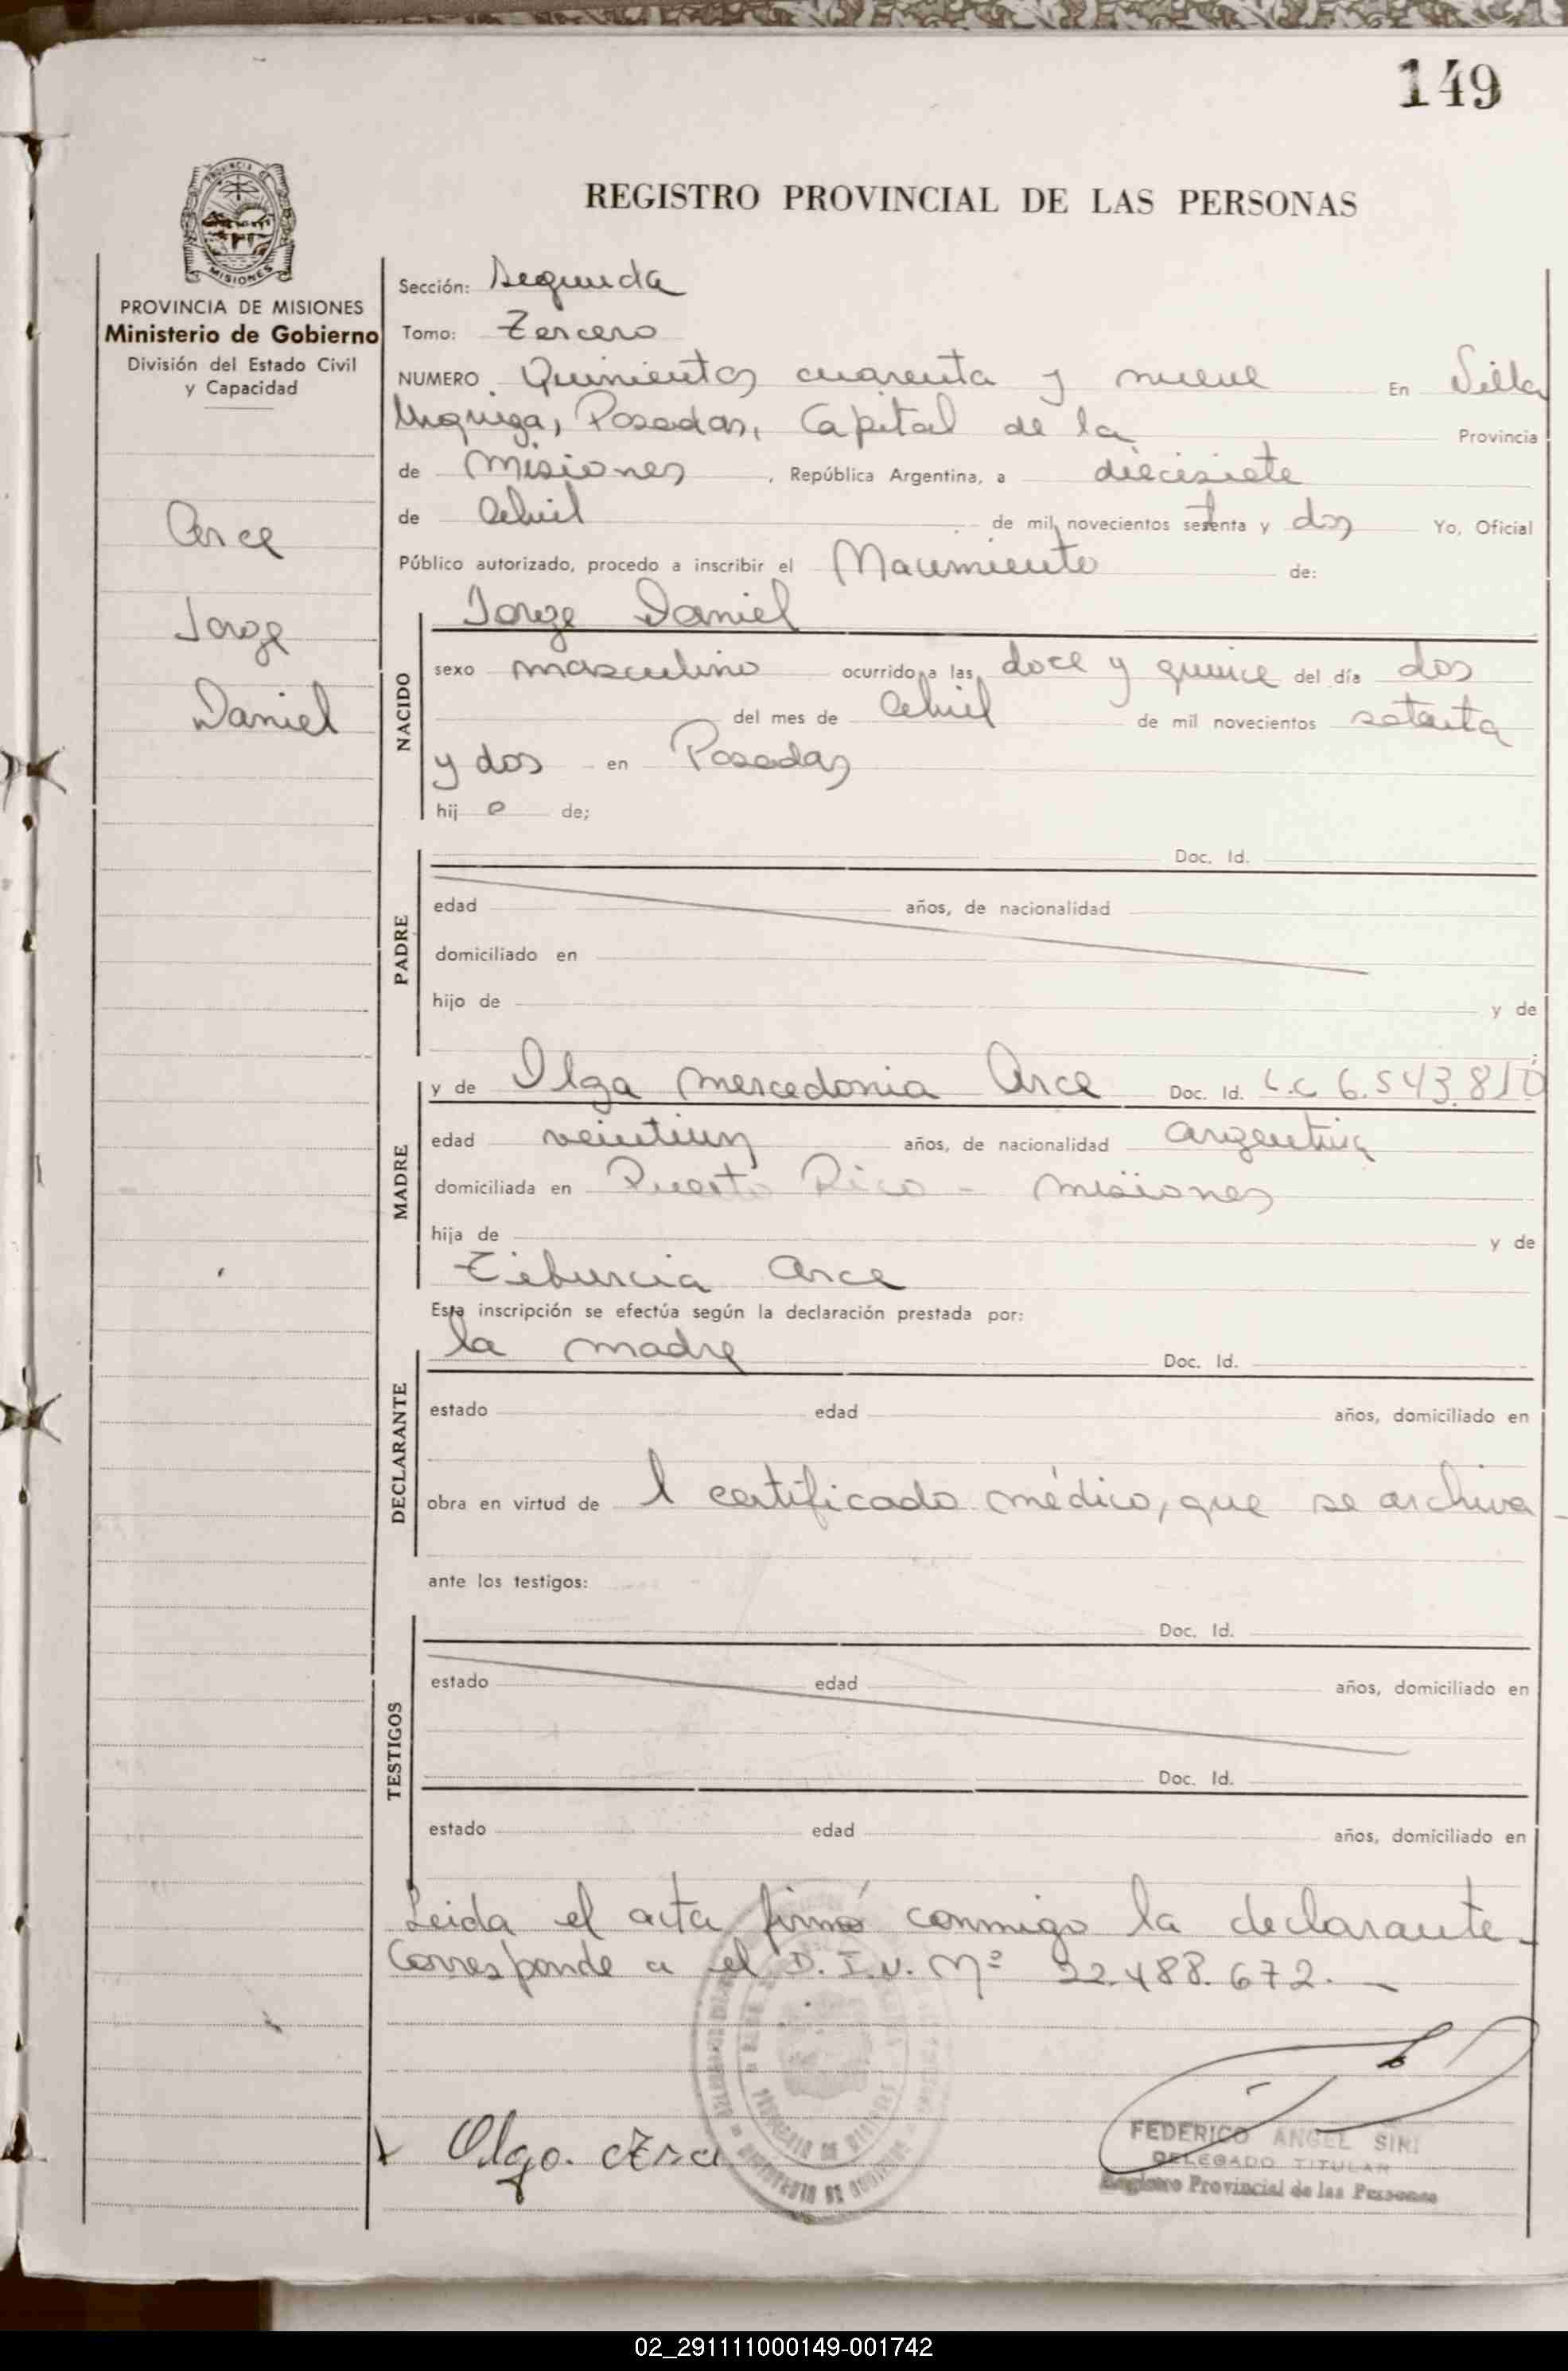 149
PROVINCIA DE
MISIONES
PROVINCIA DE MISIONES
Ministerio de Gobierno
División del Estado Civil
y Capacidad
Arce
Jorge
Daniel
REGISTRO PROVINCIAL DE LAS PERSONAS
Sección: Segunda
Tomo: Tercero
NUMERO Quinientos cuarenta y nueve En Villa
Urquiza, Posadas, Capital de la Provincia
de Misiones, República Argentina, a diecisiete
de Abril de mil novecientos setenta y dos Yo, Oficial
Público autorizado, procedo a inscribir el Nacimiento de:
NACIDO
Jorge Daniel
sexo masculino ocurrido a las doce y quince del día dos
del mes de Abril de mil novecientos setenta
y dos en Posadas
hij o de;
PADRE
Doc. Id.
edad años, de nacionalidad
domiciliado en
hijo de y de
MADRE
y de Olga Mercedonia Arce Doc. Id. L.C 6.543.810
edad veintiun años, de nacionalidad argentina
domiciliada en Puerto Rico - Misiones
hija de y de
Tiburcia Arce
Esta inscripción se efectúa según la declaración prestada por:
DECLARANTE
la madre Doc. Id.
estado edad años, domiciliado en
obra en virtud de l certificado médico, que se archiva -
ante los testigos:
TESTIGOS
Doc. Id.
estado edad años, domiciliado en
Doc. Id.
estado edad años, domiciliado en
Leida el acta firmó conmigo la declarante -
Corresponde a el D. I. N. Nº 22.488.672. -
Olga. Arce
FEDERICO ANGEL SIRI
DELEGADO TITULAR
Registro Provincial de las Personas
02_291111000149-001742